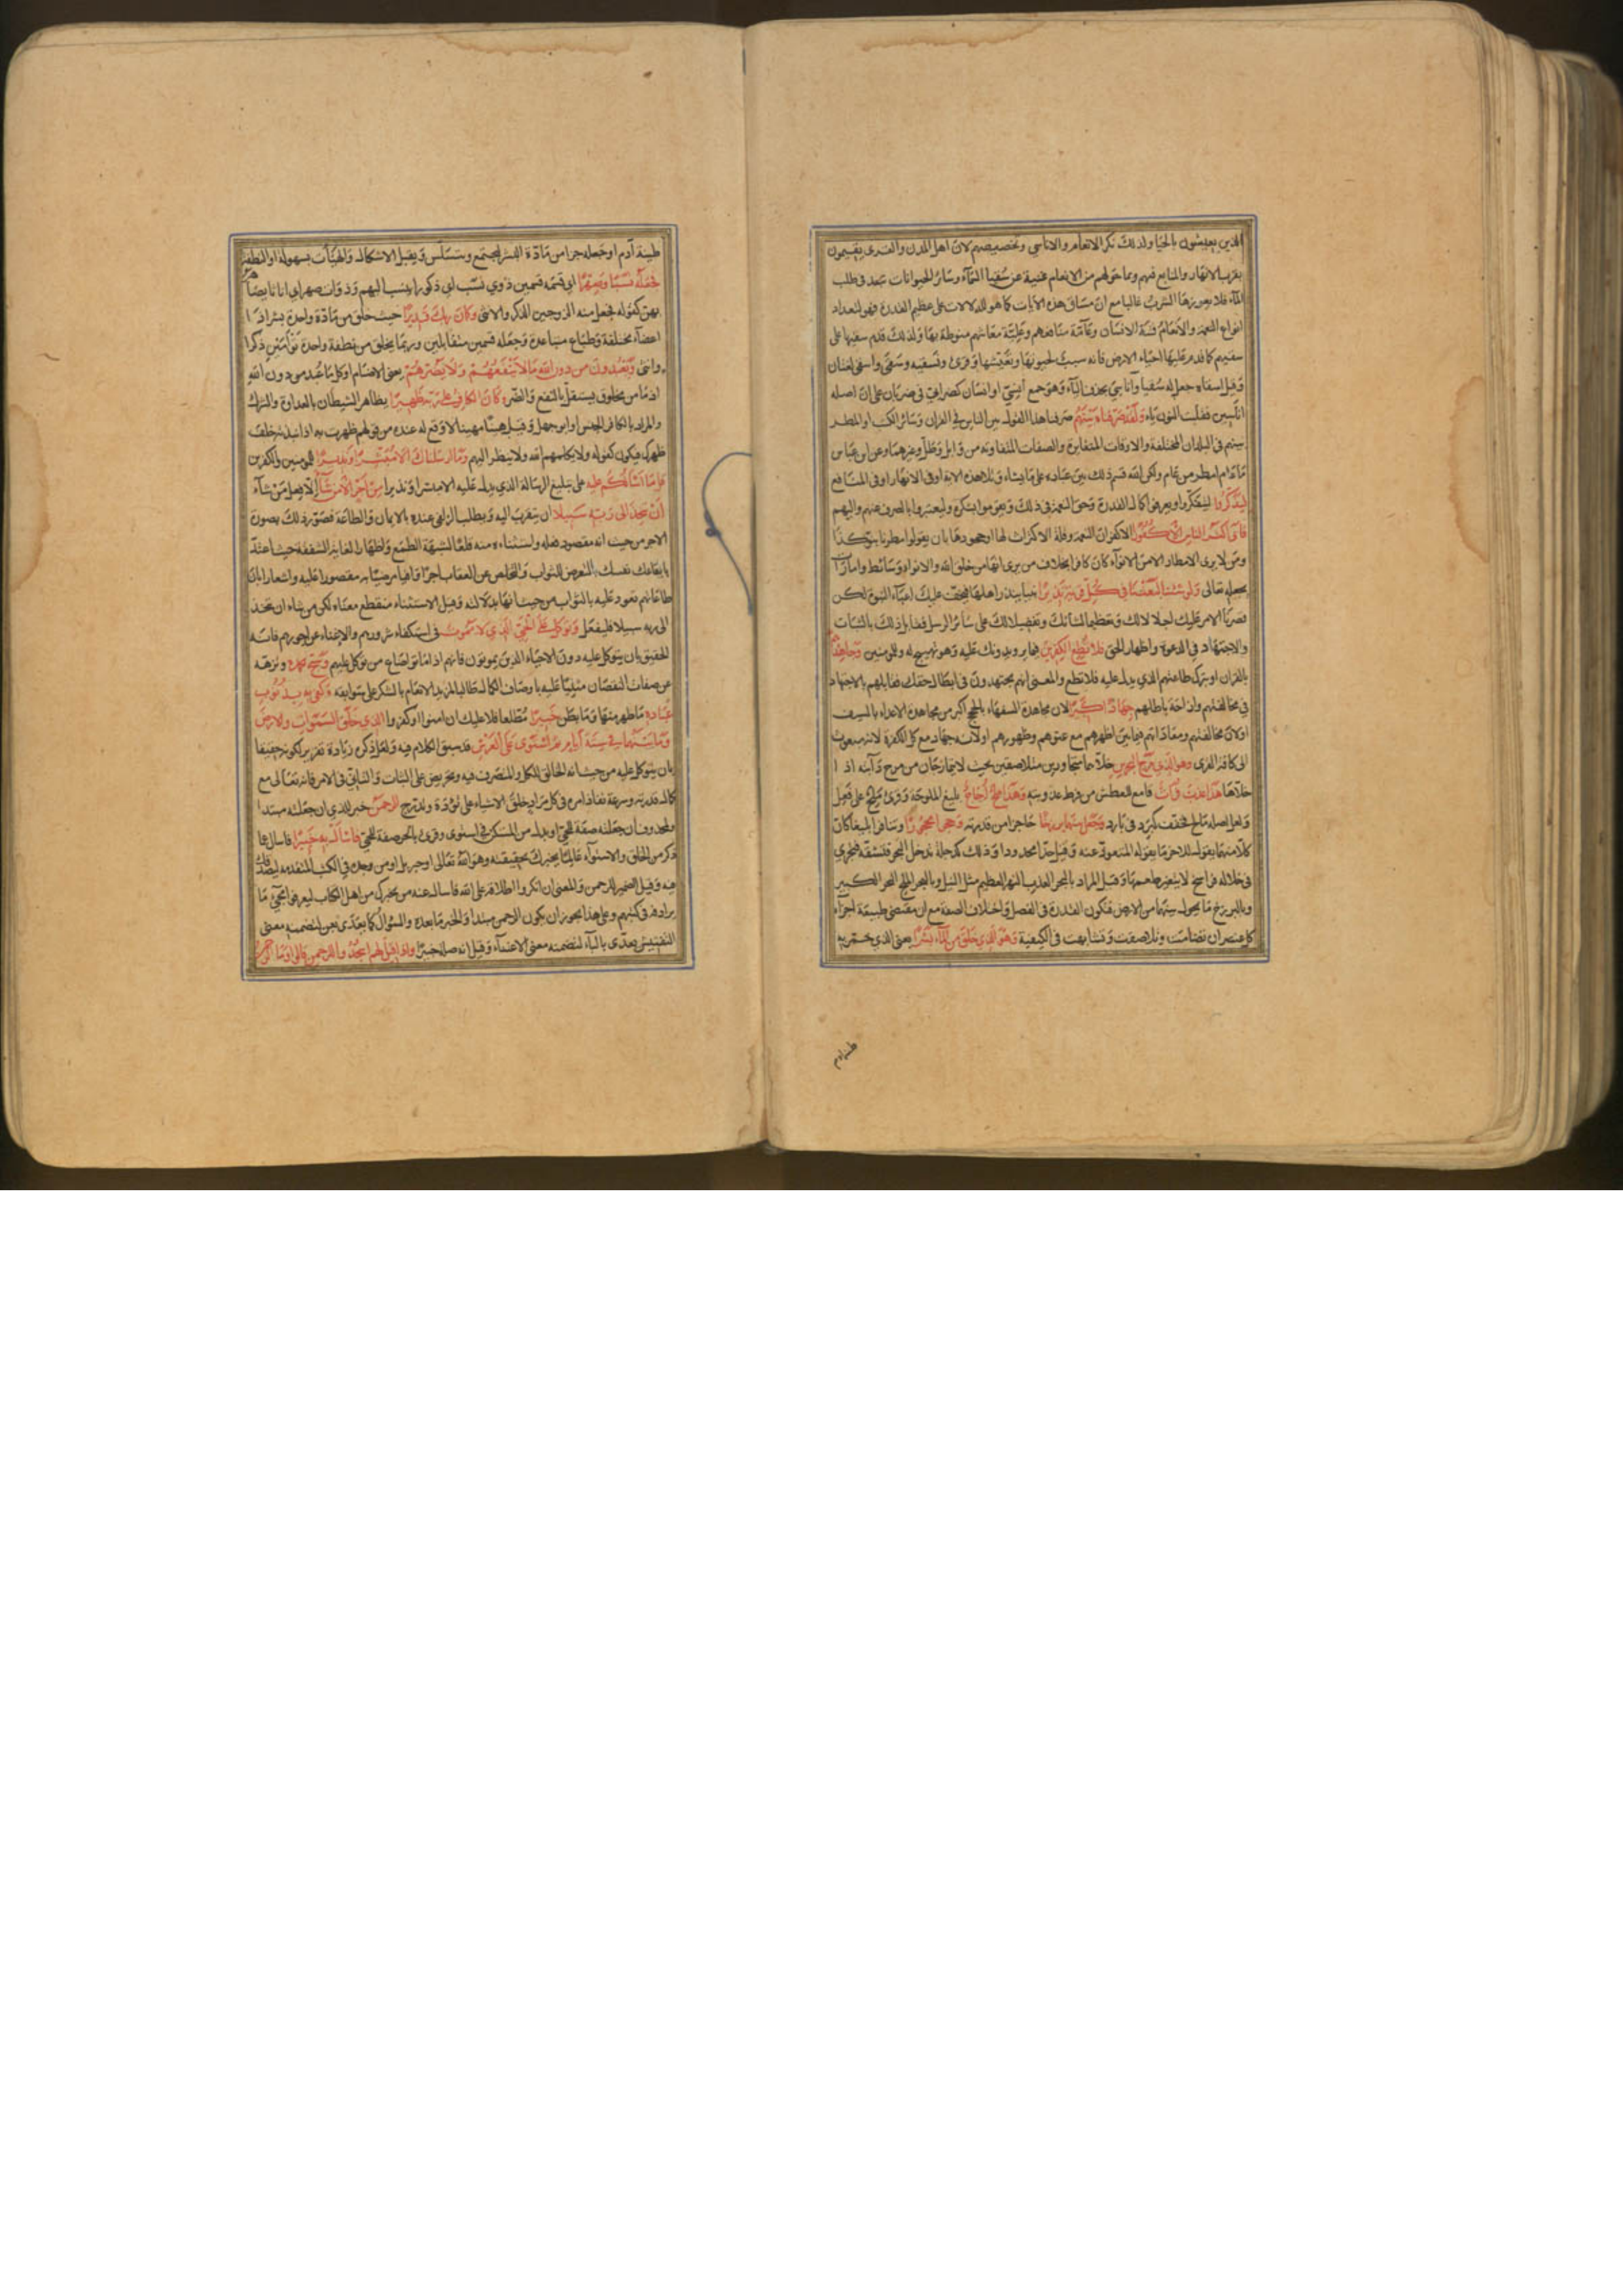 الذين يعيشون بالحيا ولذلك نكر الانعام والاناسي وتخصيصهم لان اهل المدن والقرى يقيمون
بقرب الانهار والمنابع فبهم وبما حولهم من الانعام غنية عن سقيا السماء وسائر الحيوانات تبعد في طلب
الماء فلا يعوزها الشرب غالبا مع ان مساق هذه الآيات كما هو للدلالات على عظيم القدرة فهو لتعداد
انواع النعمة والانعام قنية الانسان وعامة منافعهم وعلية معايشهم منوطة بها ولذلك قدم سقيها على
سقيهم كما قدم عليها احياء الارض فانه سبب لحيوتها وتعيشها وقرئ ونسقيه وسقى واسقى لغتان
وقيل اسقاه جعل له سقيا واناسي بحذف الياء وهو جمع انسي او انسان كظرابي في ظربان على ان اصله
اناسين فقلبت النون ياء ولقد صرفناه بينهم صرفنا هذا القول بين الناس في القران وسائر الكتب او المطر
بينهم في البلدان المختلفة والاوقات المتغايرة والصفات المتفاوتة من وابل وطل وغيرهما وعن ابن عباس
ما عام امطر من عام ولكن الله قسم ذلك بين عباده على ما يشاء وتلا هذه الاية او في الانهار او في المنافع
ليذكروا ليتفكروا ويعرفوا كمال القدرة وحق النعمة في ذلك ويقوموا بشكره وليعتبروا بالصرف عنهم واليهم
فابى اكثر الناس الا كفورا الا كفران النعمة وقلة الاكتراث لها او جحودها بان يقولوا مطرنا بنوء كذا
ومن لا يرى الامطار الا من الانواء كان كافرا بخلاف من يرى انها من خلق الله والانواء وسائط وامارات
بجعله تعالى ولو شئنا لبعثنا في كل قرية نذيرا نبيا ينذر اهلها فيخف عليك اعباء النبوة لكن
قصرنا الامر عليك اجلالا لك وتعظيما لشانك وتفضيلا لك على سائر الرسل فقابل ذلك بالثبات
والاجتهاد في الدعوة واظهار الحق فلا تطع الكافرين فيما يريدونك عليه وهو تهييج له وللمؤمنين وجاهدهم به
بالقران او بترك طاعتهم الذي يدل عليه فلا تطع والمعنى انهم يجتهدون في ابطال حقك فقابلهم بالاجتهاد
في مخالفتهم وازاحة باطلهم جهادا كبيرا لان مجاهدة السفهاء بالحجج اكبر من مجاهدة الاعداء بالسيف
اولان مخالفتهم ومعاداتهم فيما بين اظهرهم مع عتوهم وظهورهم او لانه جهاد مع كل الكفرة لانه مبعوث
الى كافة القرى وهو الذي مرج البحرين خلاهما متجاورين متلاصقين بحيث لا يتمازجان من مرج دابته اذا
خلاها هذا عذب فرات قامع للعطش من فرط عذوبته وهذا ملح اجاج بليغ الملوحة وقرئ ملح على فعل
ولعل اصله مالح فخفف كبرد في بارد وجعل بينهما برزخا حاجزا من قدرته وحجرا محجورا وتنافرا بليغا كان
كلا منهما يقول للاخر ما يقوله المتعوذ عنه وقيل حدا محدودا وذلك كدجلة تدخل البحر فتشقه فتجري
في خلاله فراسخ لا يتغير طعمها وقيل المراد بالبحر العذب النهر العظيم مثل النيل وبالبحر الملح البحر الكبير
وبالبرزخ ما يحول بينهما من الارض فتكون القدرة في الفصل واختلاف الصفة مع ان مقتضى طبيعة اجزاء
كل عنصر ان تضامت وتلاصقت وتشابهت في الكيفية وهو الذي خلق من الماء بشرا يعني الذي خمر به
طينة ادم
طينة آدم او جعله جزا من مادة البشر لتجتمع وتتسلس وتقبل الاشكال والهيئات بسهولة او النطفة
فجعله نسبا وصهرا اي قسمه قسمين ذوي نسب اي ذكورا ينسب اليهم وذوات صهر اي اناثا يصاهر
بهن كقوله فجعل منه الزوجين الذكر والانثى وكان ربك قديرا حيث خلق من مادة واحدة بشرا ذا
اعضاء مختلفة وطباع متباعدة وجعله قسمين متقابلين وربما يخلق من نطفة واحدة توأمين ذكرا
وانثى ويعبدون من دون الله ما لا ينفعهم ولا يضرهم يعني الاصنام او كل ما عبد من دون الله
اذ ما من مخلوق يستقل بالنفع والضر وكان الكافر على ربه ظهيرا يظاهر الشيطان بالعداوة والشرك
والمراد بالكافر الجنس او ابو جهل وقيل هينا مهينا لا وقع له عنده من قولهم ظهرت به اذا نبذته خلف
ظهرك فيكون كقوله ولا يكلمهم الله ولا ينظر اليهم وما ارسلناك الا مبشرا ونذيرا للمؤمنين والكافرين
قل ما اسألكم عليه على تبليغ الرسالة الذي يدل عليه الا مبشرا ونذيرا من اجر الا من شاء الا فعل من شاء
ان يتخذ الى ربه سبيلا ان يتقرب اليه ويطلب الزلفى عنده بالايمان والطاعة فصور ذلك بصورة
الاجر من حيث انه مقصود فعله واستثناءه منه قلعا لشبهة الطمع واظهارا لغاية الشفقة حيث اعتد
بانفاعك نفسك بالتعرض للثواب والتخلص عن العقاب اجرا وافيا مرضيا به مقصورا عليه واشعارا بان
طاعاتهم تعود عليه بالثواب من حيث انها بدلالته وقيل الاستثناء منقطع معناه لكن من شاء ان يتخذ
الى ربه سبيلا فليفعل وتوكل على الحي الذي لا يموت في استكفاء شرورهم والاغناء عن اجورهم فانه
الحقيق بان يتوكل عليه دون الاحياء الذين يموتون فانهم اذا ماتوا ضاع من توكل عليهم وسبح بحمده ونزهه
عن صفات النقصان مثنيا عليه باوصاف الكمال طالبا لمزيد الانعام بالشكر على سوابقه وكفى به بذنوب
عباده ما ظهر منها وما بطن خبيرا مطلعا فلا عليك ان امنوا او كفروا الذي خلق السموات والارض
وما بينهما في ستة ايام ثم استوى على العرش قد سبق الكلام فيه ولعل ذكره زيادة تقرير لكونه حقيقا
بان يتوكل عليه من حيث انه الخالق للكل والمتصرف فيه وتحريض على الثبات والتاني في الامر فانه تعالى مع
كمال قدرته وسرعة نفاذ امره في كل مراد خلق الاشياء على تؤدة وتدرج الرحمن خبر للذي ان جعلته مبتدا
ولمحذوف ان جعلته صفة للحي او بدل من المستكن في استوى وقرئ بالجر صفة للحي فاسأل به خبيرا فاسال عما
ذكر من الخلق والاستواء عالما يخبرك بحقيقته وهو الله تعالى او جبريل او من وجده في الكتب المتقدمة ليصدقك
فيه وقيل الضمير للرحمن والمعنى ان انكروا اطلاقه على الله فاسال عنه من يخبرك من اهل الكتاب ليعرفوا مجيء ما
يرادفه في كتبهم وعلى هذا يجوز ان يكون الرحمن مبتدا والخبر ما بعده والسؤال كما يعدى بعن لتضمنه معنى
التفتيش يعدى بالباء لتضمنه معنى الاعتناء وقيل انه صلة خبيرا واذا قيل لهم اسجدوا للرحمن قالوا وما الرحمن